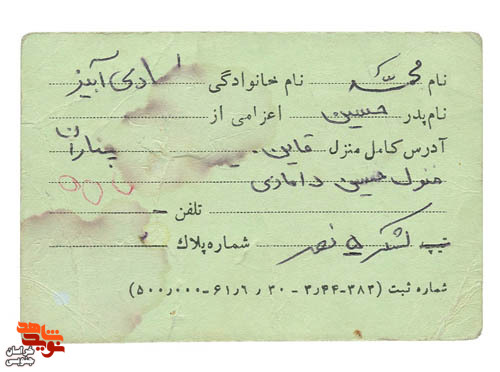 نام محمد نام خانوادگی اسدی آبیز
نام پدر حسین اعزامی از
آدرس کامل منزل قاین - چناران
منزل حسین دامادی
تلفن -
تیپ لشکر ۵ نصر شماره پلاک
شماره ثبت (۳۸۳-۳٫۴۴ - ۳۰ ٫ ۶۱٫۶-۵۰۰٫۰۰۰)
نوید شاهد
خراسان جنوبی